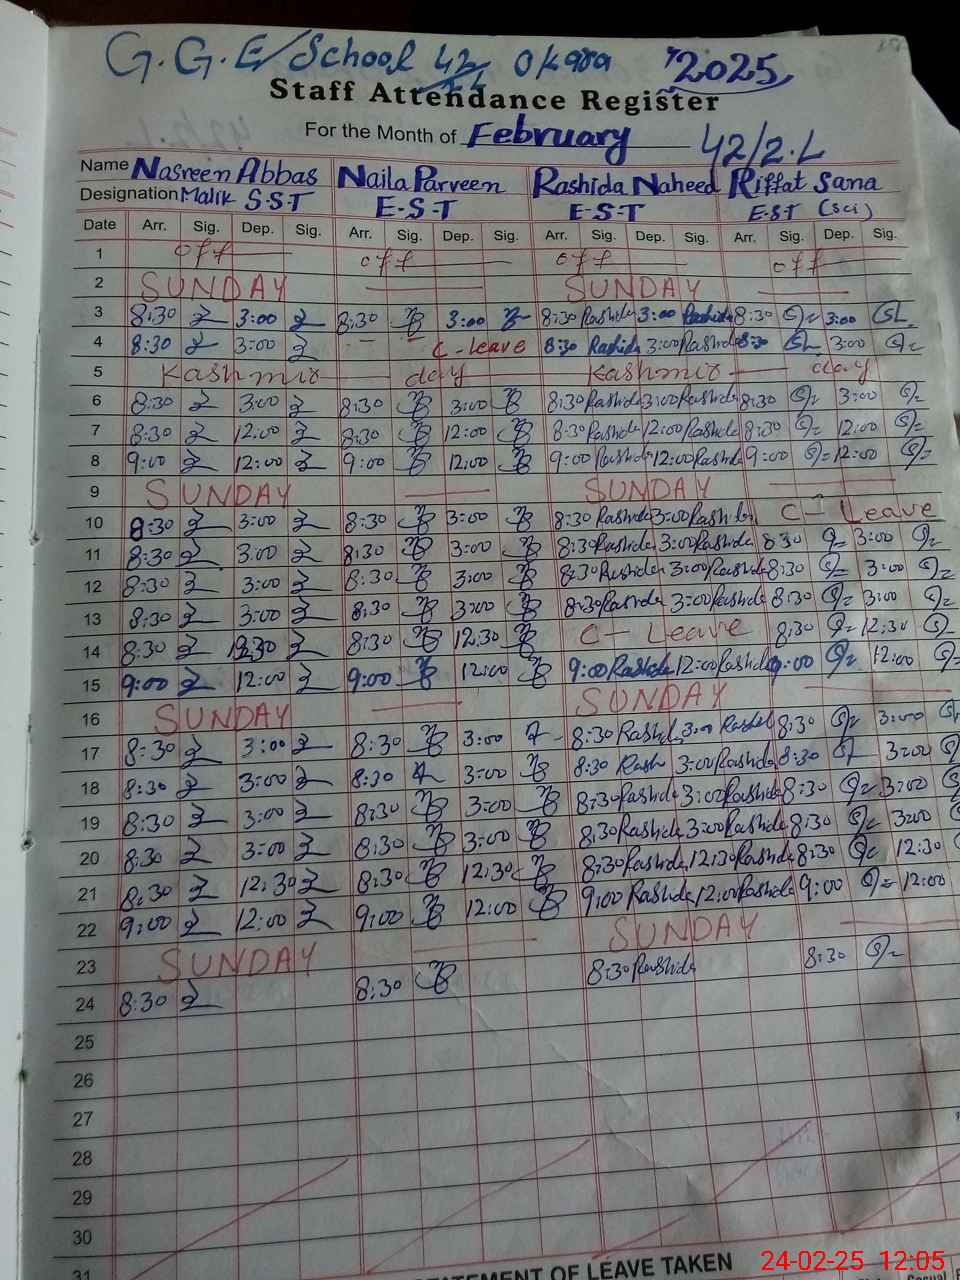 G.G.E/School 42 Okara 2025
Staff Attendance Register
For the Month of February 42/2.L
Name Nasreen Abbas Naila Parveen Rashida Naheed Riffat Sana
Designation Malik S.S.T E-S-T E-S-T E.S.T (Sci)
Date Arr. Sig. Dep. Sig. Arr. Sig. Dep. Sig. Arr. Sig. Dep. Sig. Arr. Sig. Dep. Sig.
1 off off off off
2 SUNDAY SUNDAY
3 8:30 3:00 8:30 3:00 8:30 Rashida 3:00 Rashida 8:30 3:00
4 8:30 3:00 C-leave 8:30 Rashida 3:00 Rashida 8:30 3:00
5 Kashmir day Kashmir day
6 8:30 3:00 8:30 3:00 8:30 Rashida 3:00 Rashida 8:30 3:00
7 8:30 12:00 8:30 12:00 8:30 Rashida 12:00 Rashida 8:30 12:00
8 9:00 12:00 9:00 12:00 9:00 Rashida 12:00 Rashida 9:00 12:00
9 SUNDAY SUNDAY
10 8:30 3:00 8:30 3:00 8:30 Rashida 3:00 Rashida C- Leave
11 8:30 3:00 8:30 3:00 8:30 Rashida 3:00 Rashida 8:30 3:00
12 8:30 3:00 8:30 3:00 8:30 Rashida 3:00 Rashida 8:30 3:00
13 8:30 3:00 8:30 3:00 8:30 Rashida 3:00 Rashida 8:30 3:00
14 8:30 12:30 8:30 12:30 C- Leave 8:30 12:30
15 9:00 12:00 9:00 12:00 9:00 Rashida 12:00 Rashida 9:00 12:00
16 SUNDAY SUNDAY
17 8:30 3:00 8:30 3:00 8:30 Rashida 3:00 Rashida 8:30 3:00
18 8:30 3:00 8:30 3:00 8:30 Rash 3:00 Rashida 8:30 3:00
19 8:30 3:00 8:30 3:00 8:30 Rashida 3:00 Rashida 8:30 3:00
20 8:30 3:00 8:30 3:00 8:30 Rashida 3:00 Rashida 8:30 3:00
21 8:30 12:30 8:30 12:30 8:30 Rashida 12:30 Rashida 8:30 12:30
22 9:00 12:00 9:00 12:00 9:00 Rashida 12:00 Rashida 9:00 12:00
23 SUNDAY SUNDAY
24 8:30 8:30 8:30 Rashida 8:30
25
26
27
28
29
30
31
STATEMENT OF LEAVE TAKEN
Casual
24-02-25 12:05